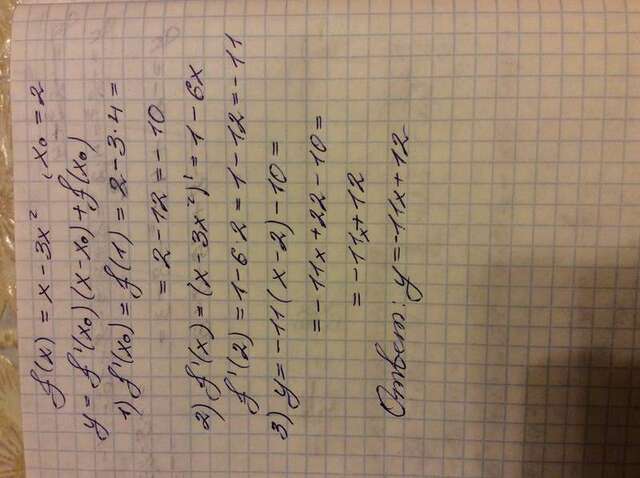 f(x) = x - 3x², x₀ = 2
y = f'(x₀)(x-x₀)+f(x₀)
1) f'(x₀) = f(1) = 2-3·4 =
= 2-12 = -10
2) f'(x) = (x-3x²)' = 1-6x
f'(2) = 1-6·2 = 1-12 = -11
3) y = -11(x-2)-10 =
= -11x+22-10 =
= -11x+12
Ответ: y = -11x+12